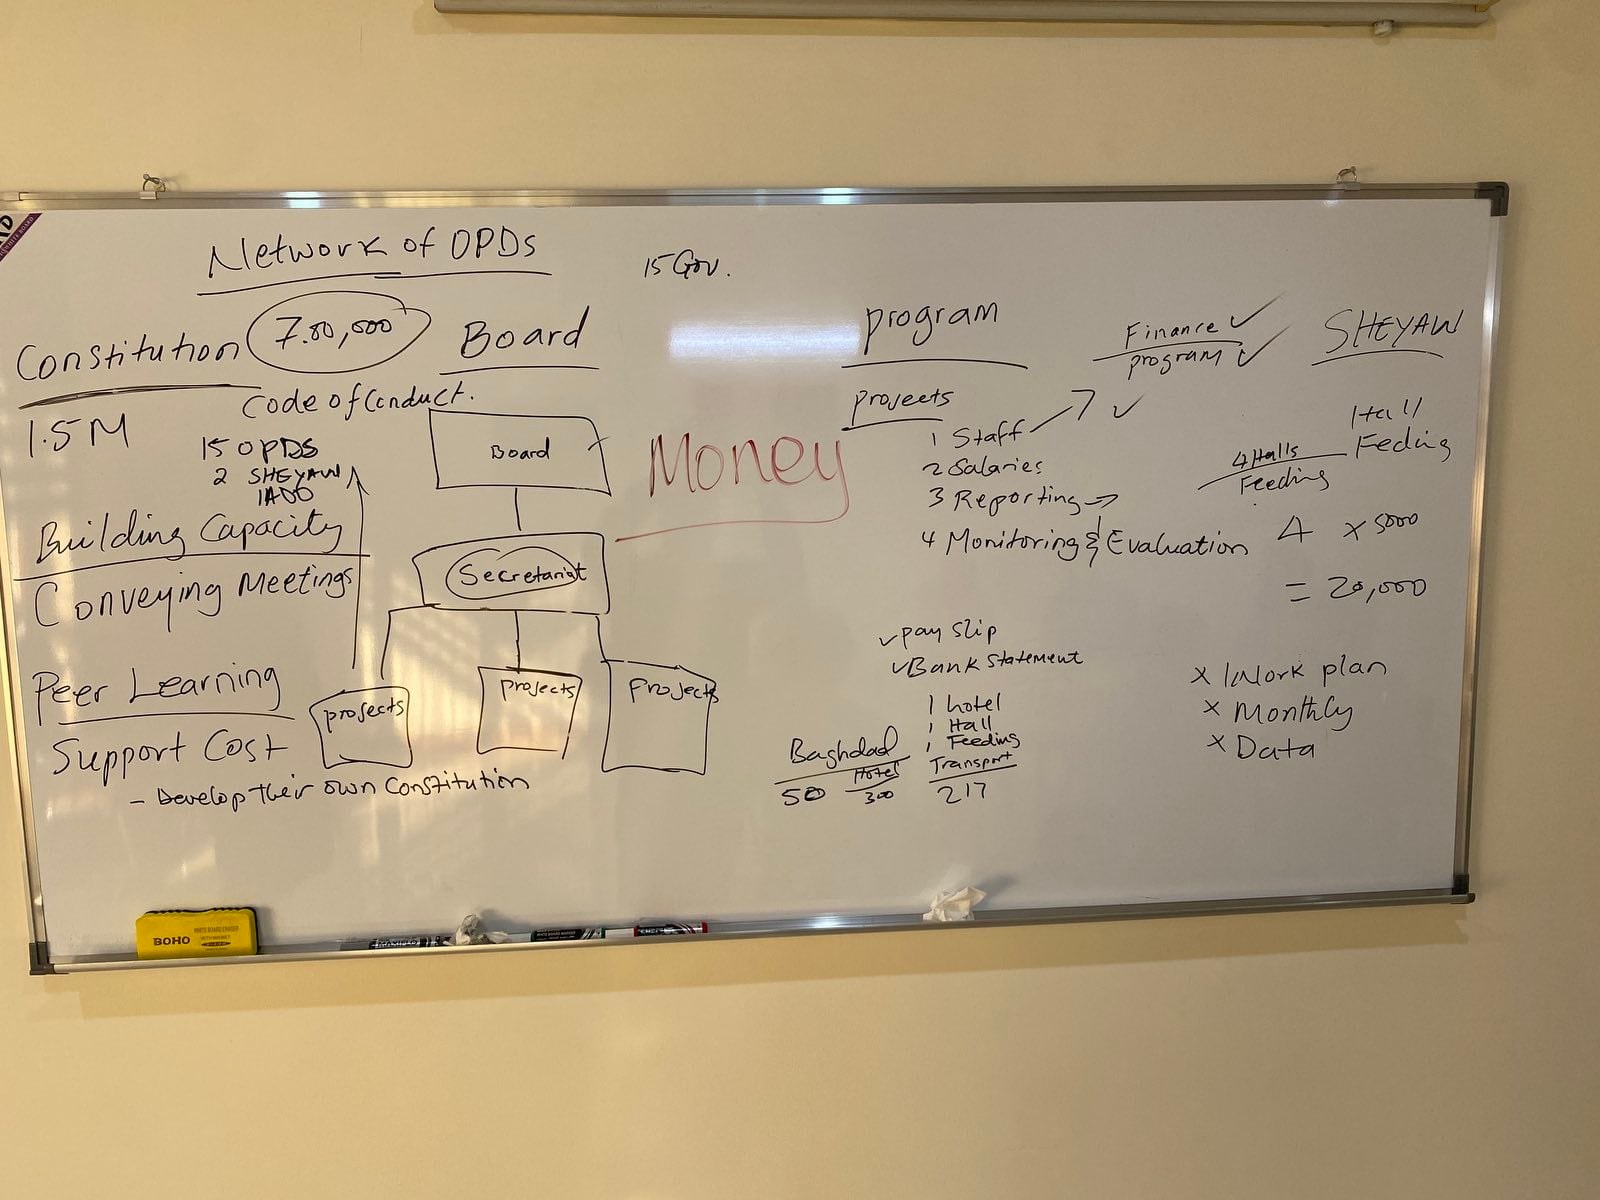 Network of OPDs
15 Gov.
Constitution
7.80,000
Board
Code of Conduct.
1.5M
15 OPDS
2 SHEYAW
IADO
Building Capacity
Conveying Meetings
Peer Learning
Support Cost
- Develop their own Constitution
Board
Secretariat
projects
projects
Projects
Money
program
projects
1 Staff
2 Salaries
3 Reporting
4 Monitoring & Evaluation
Finance ✓
program ✓
✓
SHEYAW
Hall
Feding
4 Halls
Feeding
4 x 5000
= 20,000
✓ pay slip
✓ Bank statement
1 hotel
1 Hall
1 Feeding
Transport
217
Baghdad
Hotel
50
300
x Work plan
x Monthly
x Data
BOHO